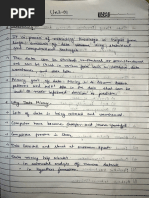 Unit-01
It is process of extracting knowledge or insight from
large amounts of data using statistical
and computational techniques.
The data can be structured, semi-structured or unstructured
and can be stored in various form such as databases,
data warehouses
Primary goal of data mining is to discover hidden
patterns and relationships in the data that can be used to make
informed decision or predictions.
Why Data Mining:
Lots of data is being collected and warehoused.
Computers have become cheaper and more powerful.
Competitive pressure is strong.
Data collected and stored at enormous speeds.
Data mining help scientist
- in automated analysis of massive datasets
- in hypothesis formation